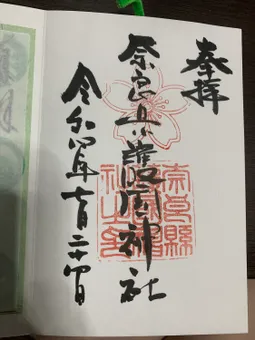 奉拝
奈良県護国神社
令和四年七月二十四日
奈良縣護國神社之印